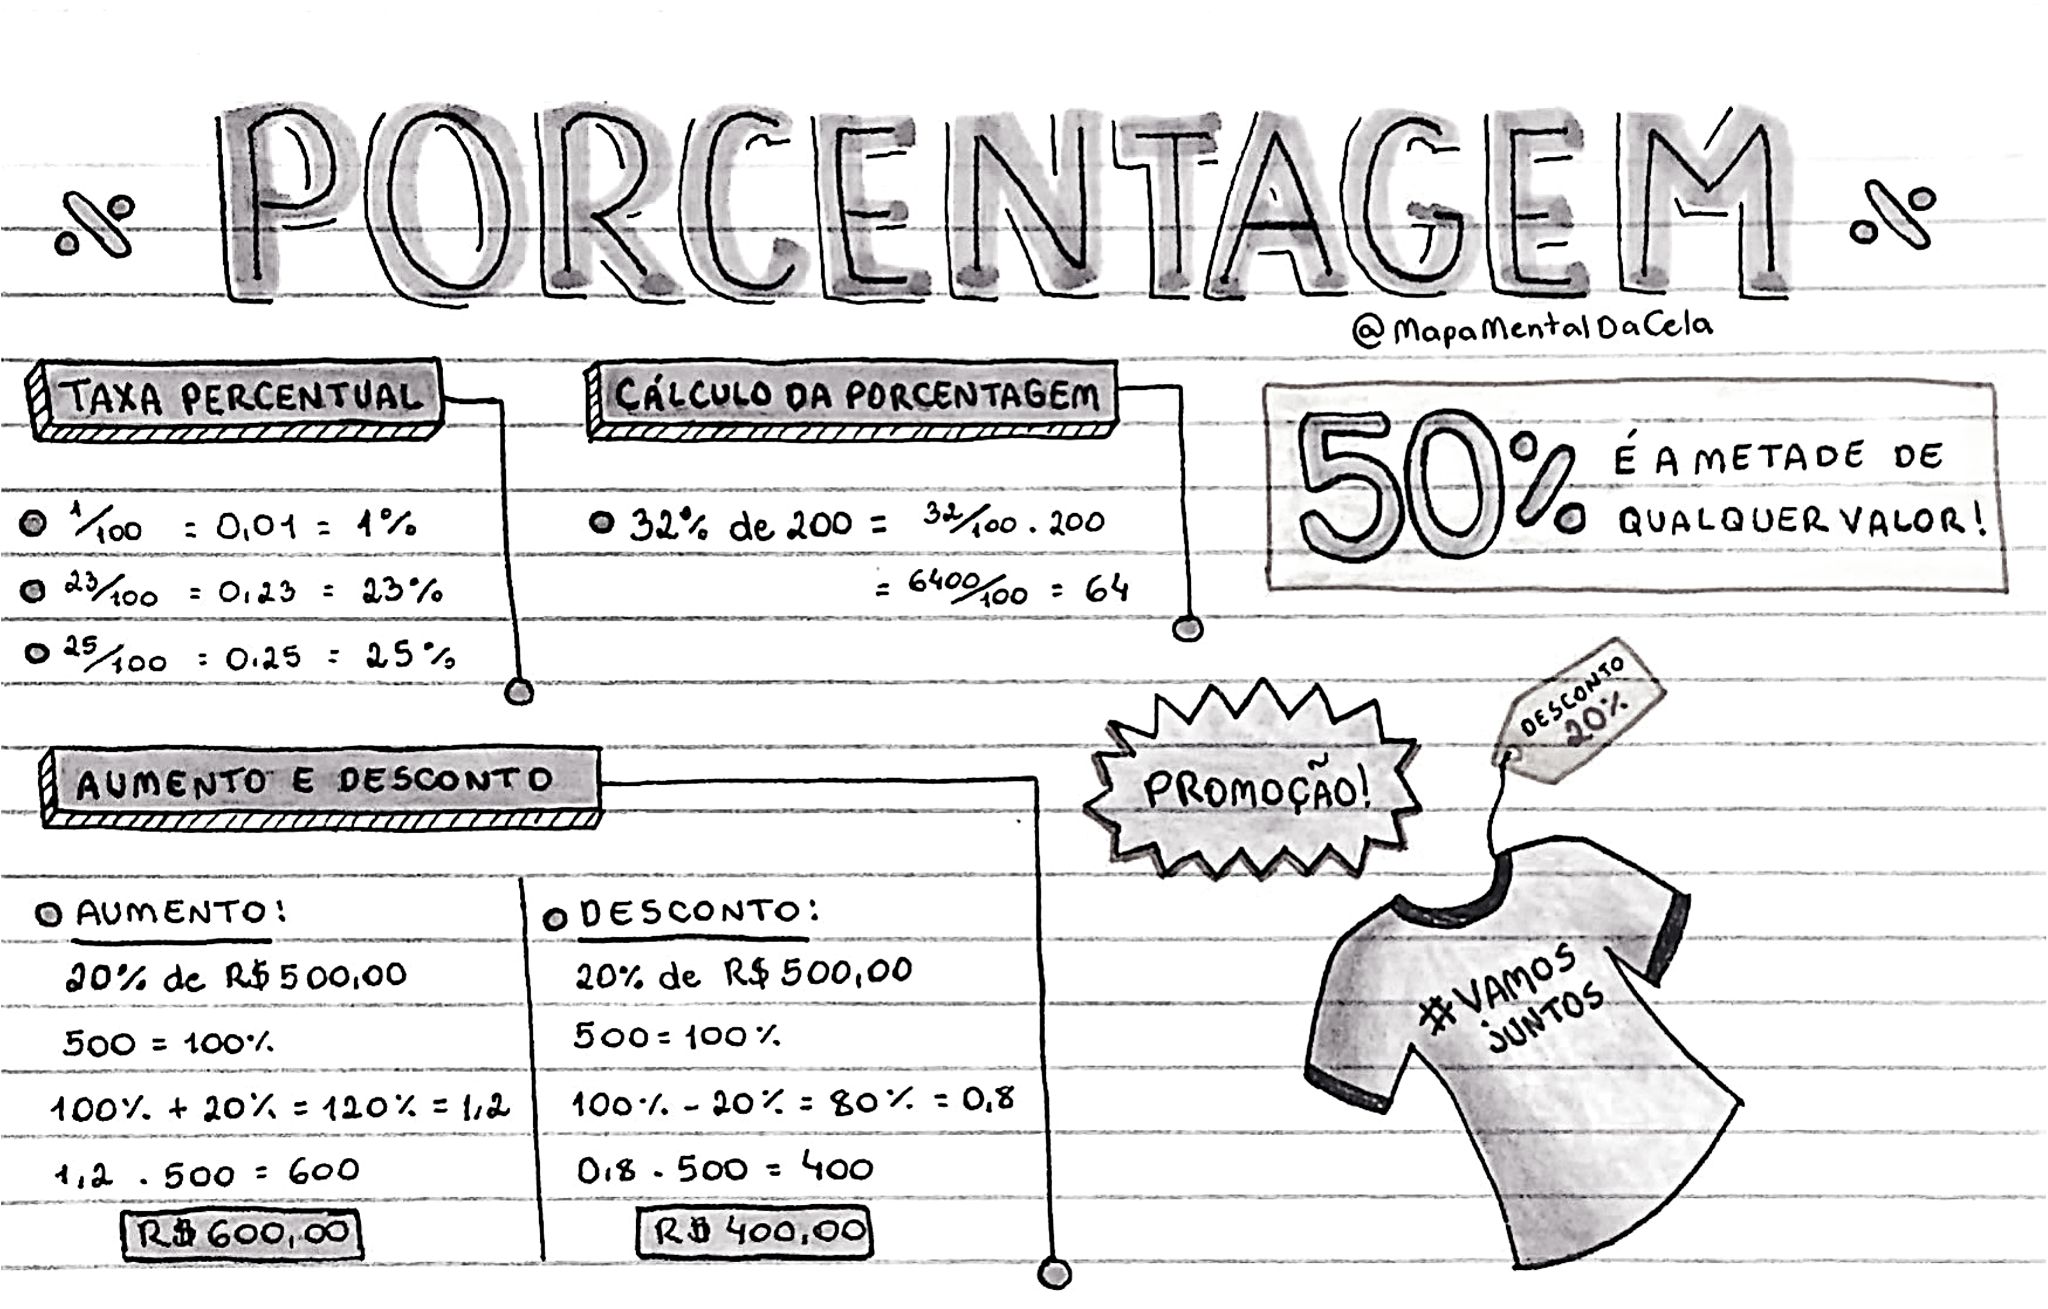 PORCENTAGEM
@MapaMentalDaCela
TAXA PERCENTUAL
1/100 = 0,01 = 1%
23/100 = 0,23 = 23%
25/100 = 0,25 = 25%
CÁLCULO DA PORCENTAGEM
32% de 200 = 32/100 . 200
= 6400/100 = 64
50% É A METADE DE
QUALQUER VALOR!
AUMENTO E DESCONTO
AUMENTO!
20% de R$ 500,00
500 = 100%
100% + 20% = 120% = 1,2
1,2 . 500 = 600
R$ 600,00
DESCONTO:
20% de R$ 500,00
500 = 100%
100% - 20% = 80% = 0,8
0,8 . 500 = 400
R$ 400,00
PROMOÇÃO!
DESCONTO
20%
#VAMOS
JUNTOS